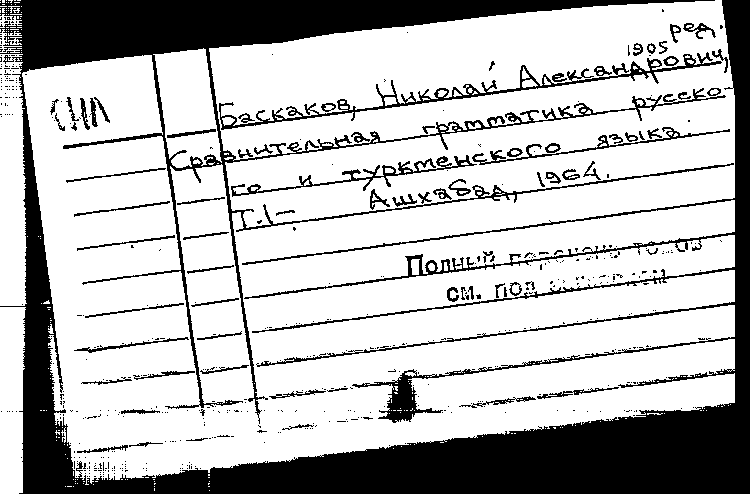 ред.
1905
Баскаков, Николай Александрович,
Сравнительная грамматика русско-
го и туркменского языка.
Т.1-. Ашхабад, 1964.
Полный перечень томов
см. под